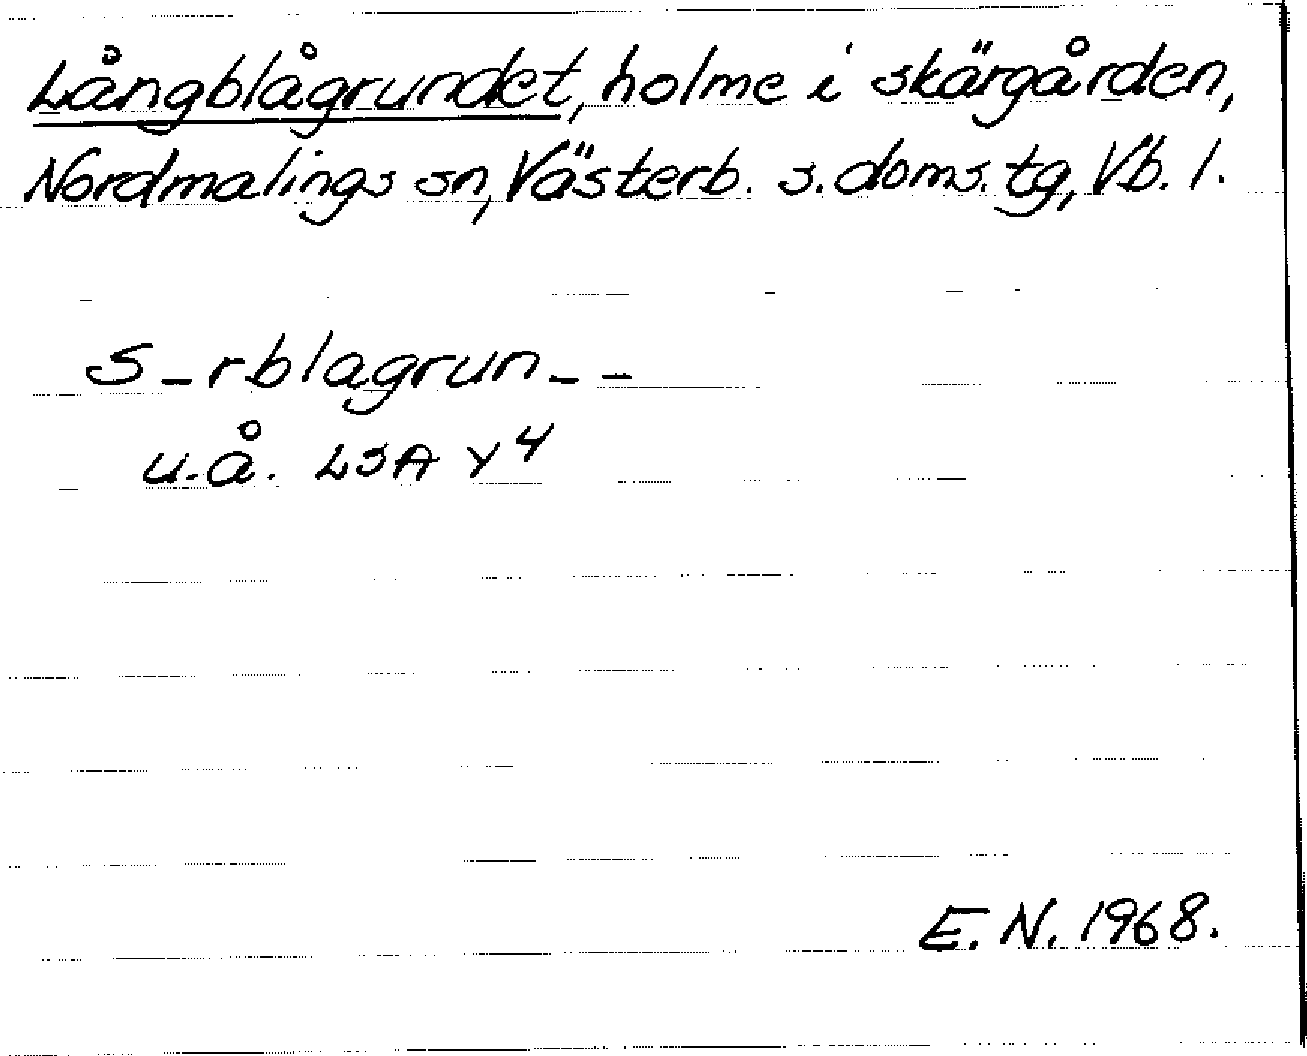 Långblågrundet, holme i skärgården,
Nordmalings sn, Västerb. s. doms. tg, Vb. l.
S_rblagrun_ _
u.å. LSA Y4
E.N. 1968.